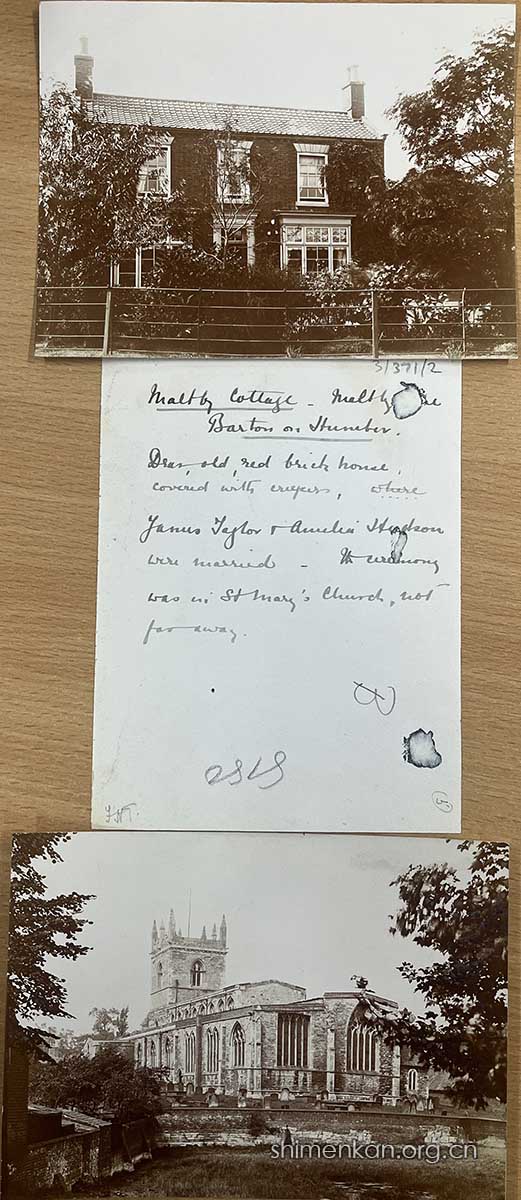 S/371/2
Maltby Cottage - Maltby
Barton on Humber.
Dear, old, red brick house,
covered with creepers, where
James Taylor & Amelia Hudson
were married - The ceremony
was in St Mary's Church, not
far away.
shimenkan.org.cn